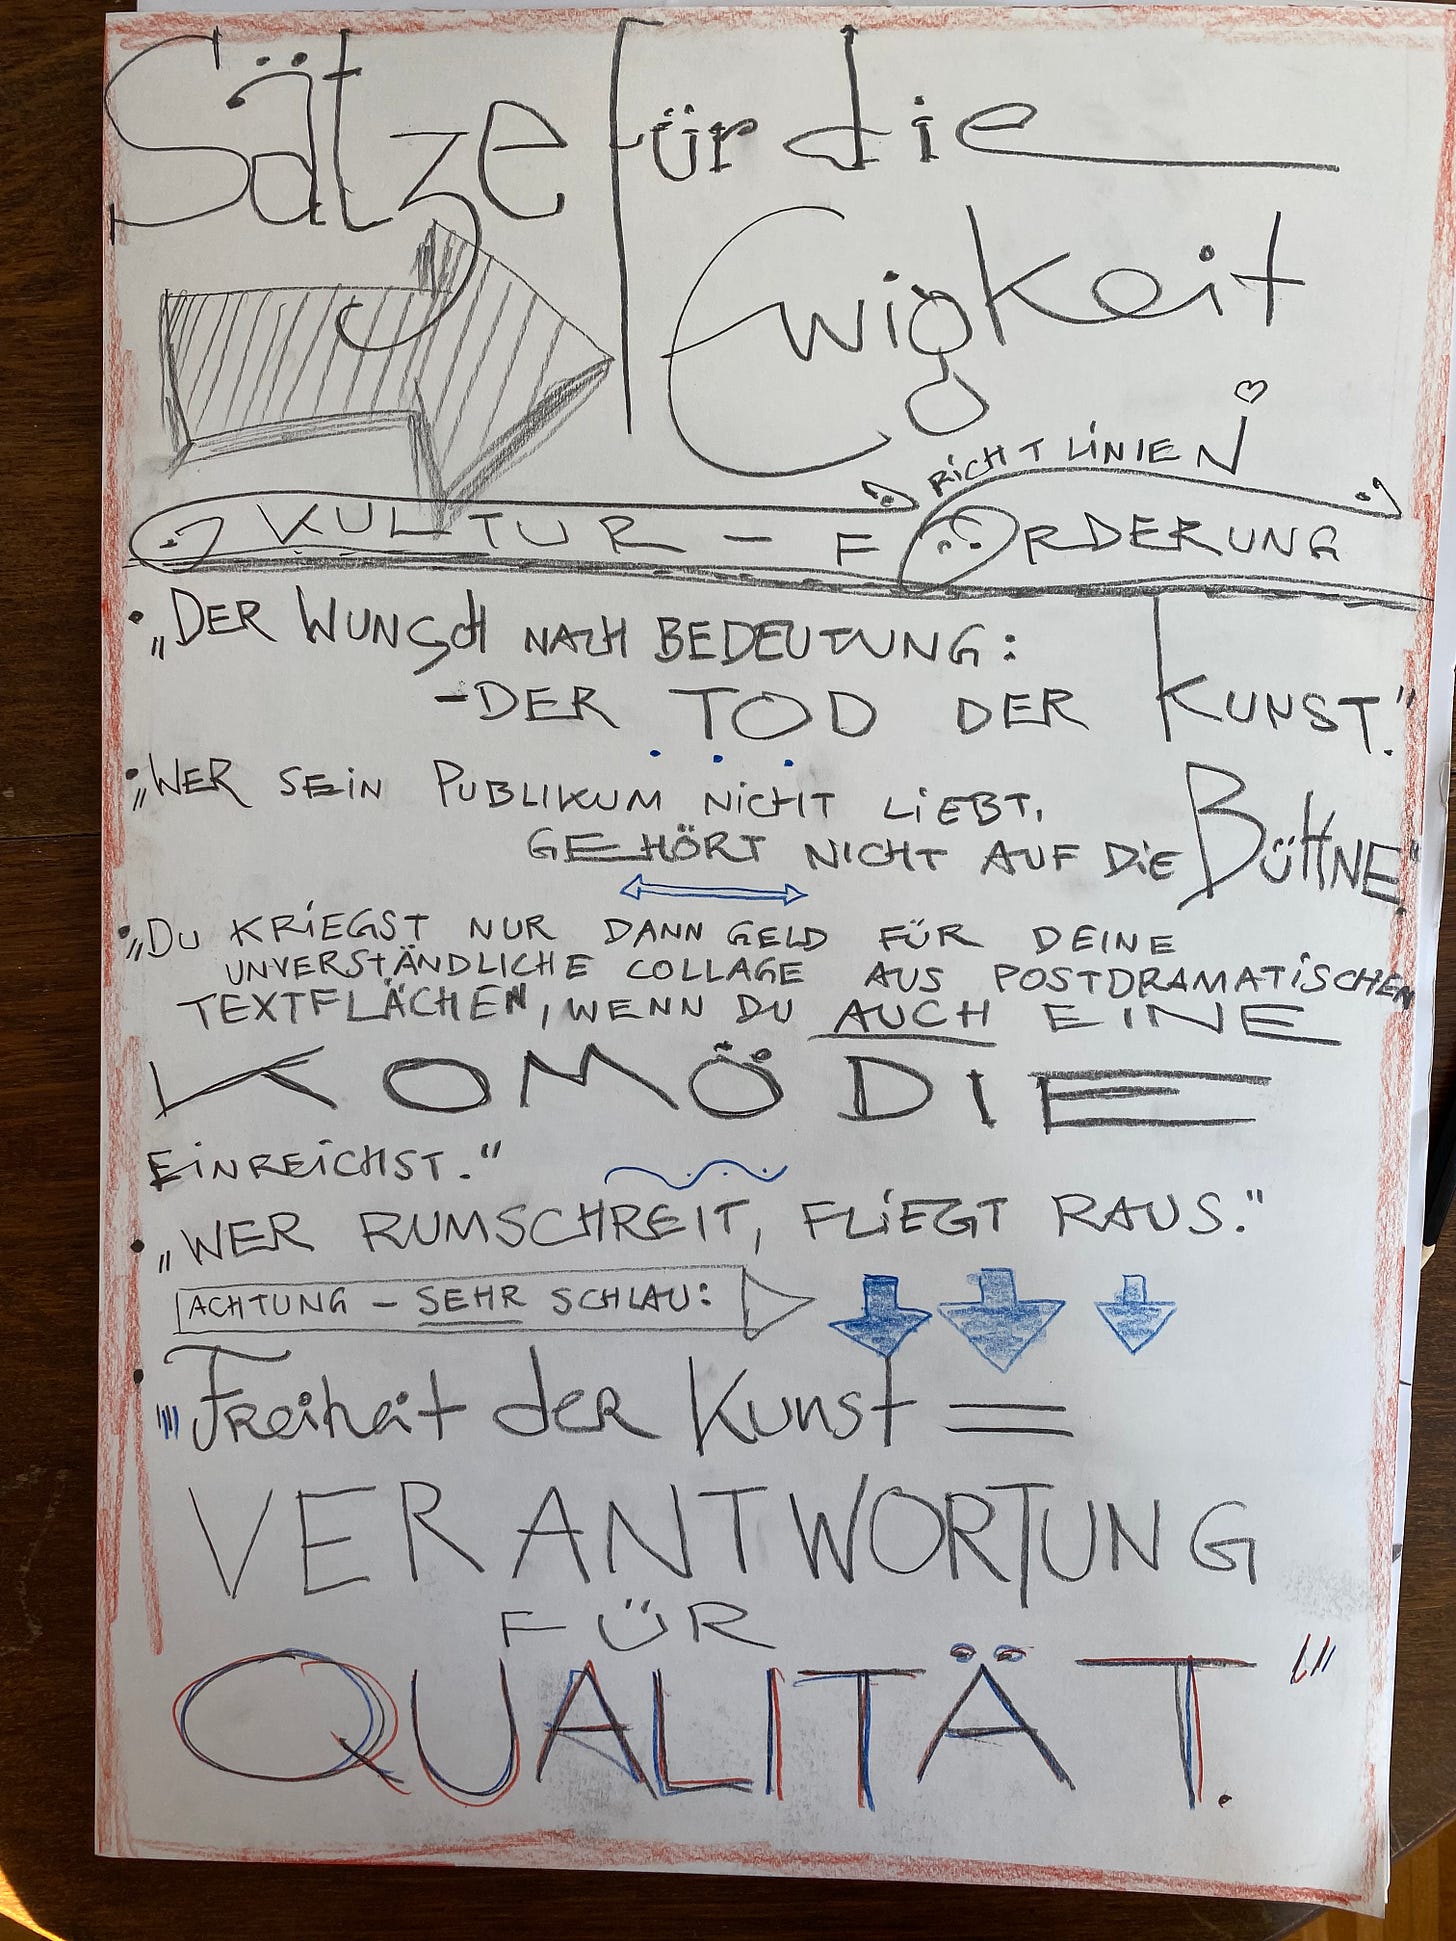 Sätze für die
Ewigkeit
RICHTLINIEN
KULTUR - FÖRDERUNG
• „DER WUNSCH NACH BEDEUTUNG:
- DER TOD DER KUNST."
• „WER SEIN PUBLIKUM NICHT LIEBT,
GEHÖRT NICHT AUF DIE BÜHNE."
• „DU KRIEGST NUR DANN GELD FÜR DEINE
UNVERSTÄNDLICHE COLLAGE AUS POSTDRAMATISCHEN
TEXTFLÄCHEN, WENN DU AUCH EINE
KOMÖDIE
EINREICHST."
• „WER RUMSCHREIT, FLIEGT RAUS."
ACHTUNG - SEHR SCHLAU:
• „Freiheit der Kunst =
VERANTWORTUNG
FÜR
QUALITÄT."